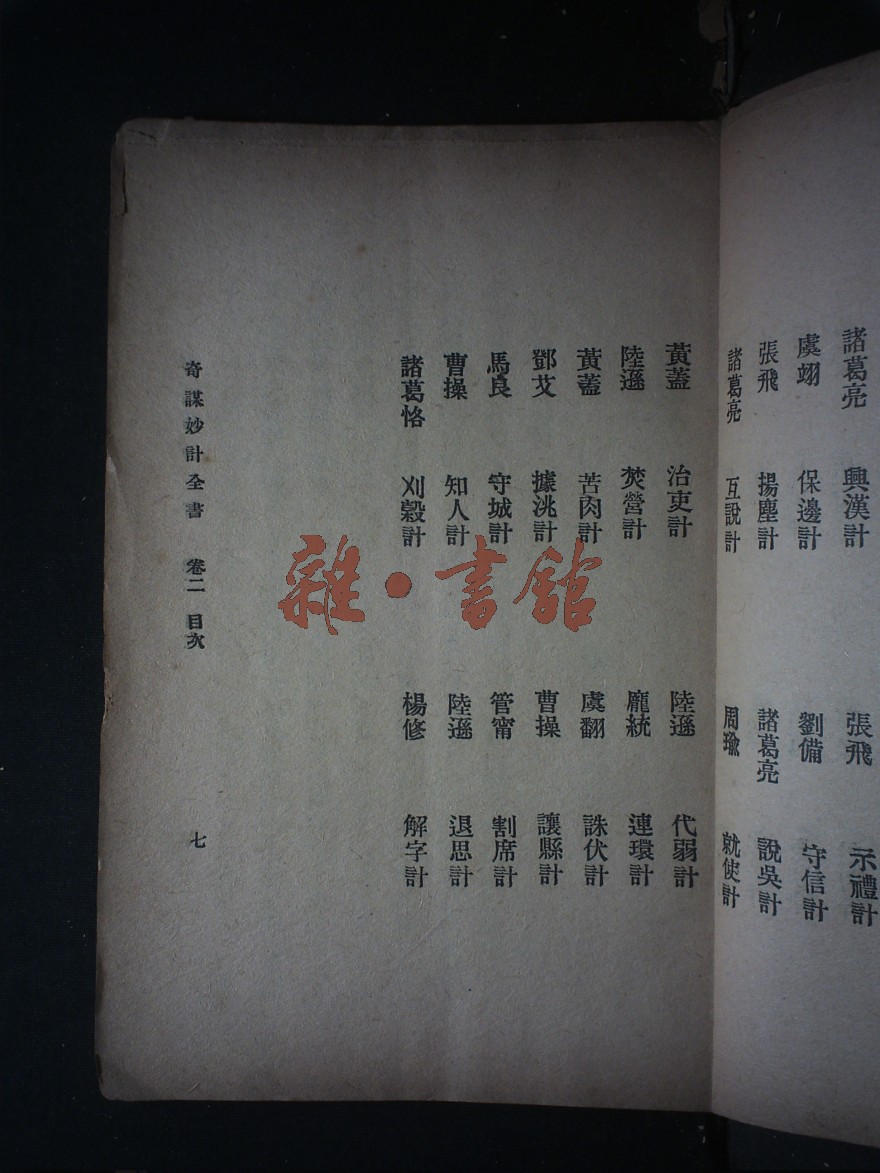 諸葛亮 興漢計 張飛 示禮計
虞翊 保邊計 劉備 守信計
張飛 揚塵計 諸葛亮 說吳計
諸葛亮 互說計 周瑜 就使計
黃蓋 治吏計 陸遜 代弱計
陸遜 焚營計 龐統 連環計
黃蓋 苦肉計 虞翻 誅伏計
鄧艾 據洮計 曹操 讓縣計
馬良 守城計 管甯 割席計
曹操 知人計 陸遜 退思計
諸葛恪 刈穀計 楊修 解字計
奇謀妙計全書 卷二 目次 七
雜·書館